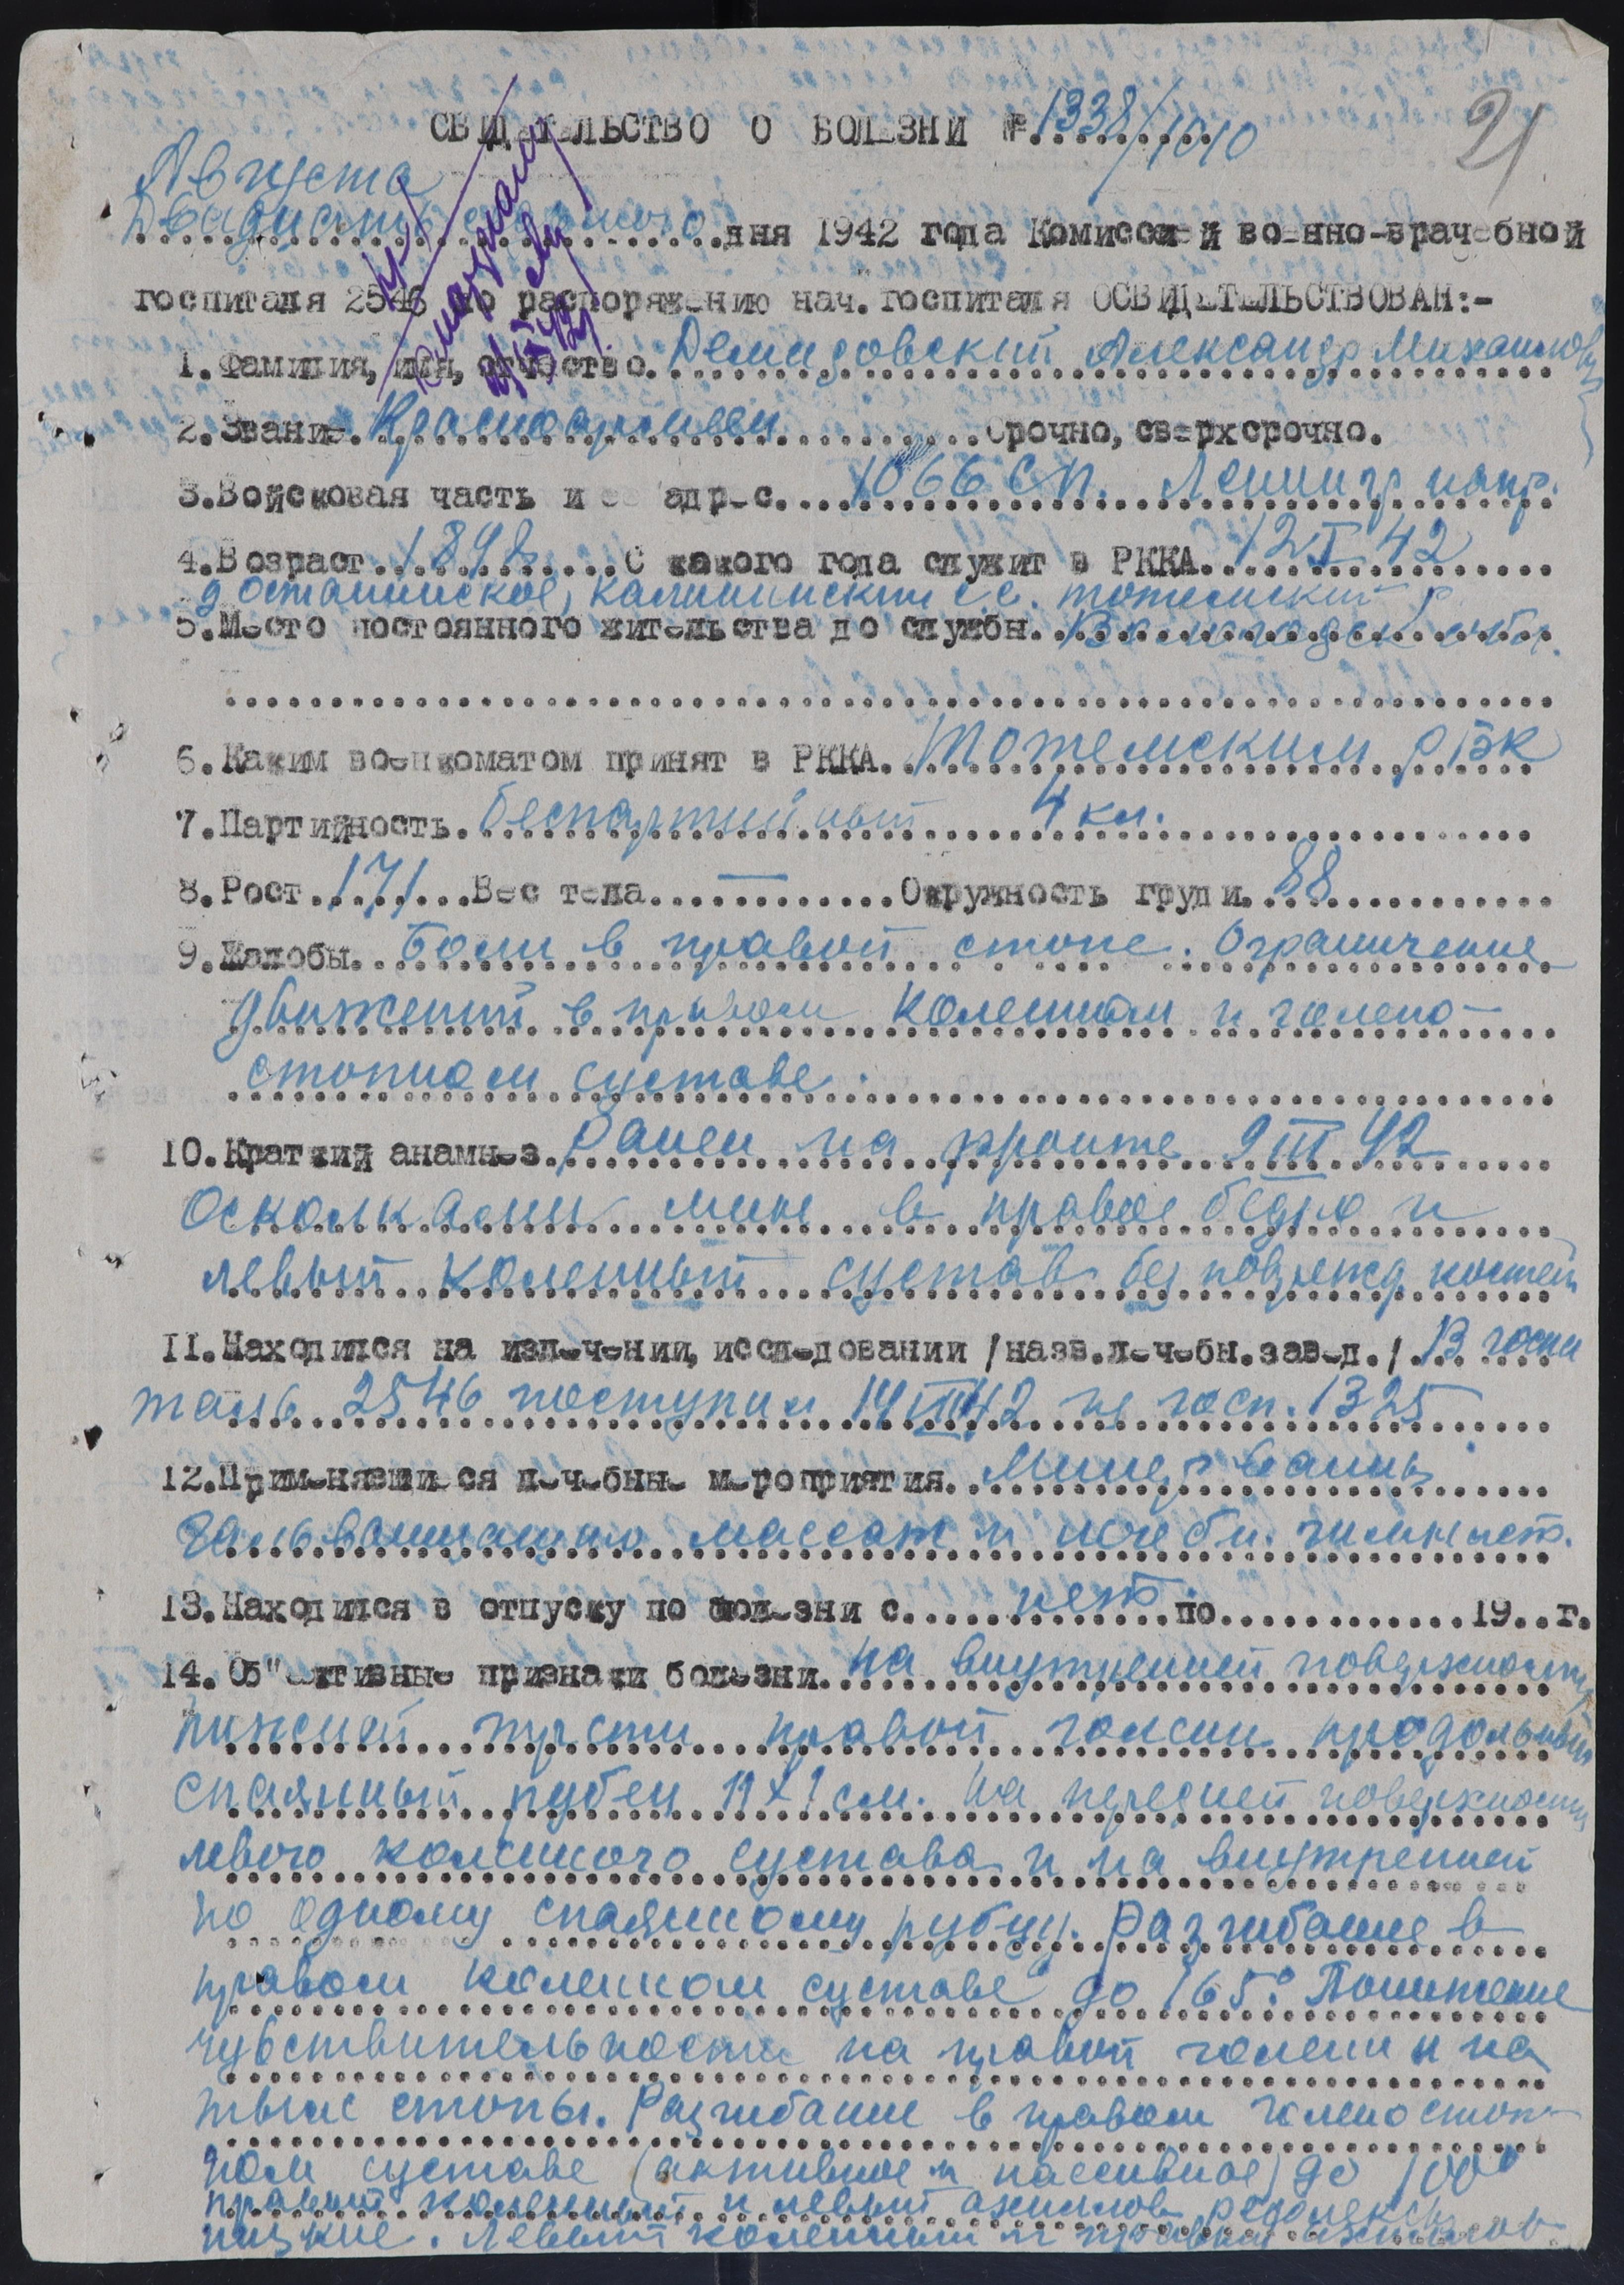 СВИДЕТЕЛЬСТВО О БОЛЕЗНИ № 1338/1010
21
Августа
Двадцать дня 1942 года Комиссией военно-врачебной
госпиталя 2546 по распоряжению нач. госпиталя ОСВИДЕТЕЛЬСТВОВАН:-
1. Фамилия, имя, отчество. Демидовский Александр Михайлович
2. Звание. Красноармеец Срочно, сверхсрочно.
3. Войсковая часть и ее адрес. 1066 СП. Ленингр напр.
4. Возраст 1898 С какого года служит в РККА. 12 I 42
д Осташинское, Калининский с.с. Тотемский р
5. Место постоянного жительства до службы. Вологодск обл.
6. Каким военкоматом принят в РККА. Тотемским РВК
7. Партийность. беспартийный 4 кл.
8. Рост 171 Вес тела — Окружность груди 88
9. Жалобы. Боли в правой стопе. Ограничение
движений в правом коленном и голено-
стопном суставе.
10. Краткий анамнез. Ранен на фронте 9 III 42
Осколками мины в правое бедро и
левый коленный сустав без поврежд костей
11. Находился на излечении, исследовании /назв.лечебн.завед./ В госпи
таль 2546 поступил 14 42 из госп. 1325
12. Применявшиеся лечебные мероприятия. Минер ванны
гальванизацию массаж и лечебн. гимнаст.
13. Находился в отпуску по болезни с нет по 19 г.
14. Об"ективные признаки болезни. На внутренней поверхности
нижней трети правой голени продольный
спаянный рубец 11 х 1 см. На передней поверхности
левого коленного сустава и на внутренней
по одному спаянному рубцу. Разгибание в
правом коленном суставе до 165° Понижение
чувствительности на правой голени и на
тыле стопы. Разгибание в правом голеностоп-
ном суставе (активное и пассивное) до 100°
правый коленный и левый ахиллов рефлексы
низкие. Левый коленный и правый ахиллов